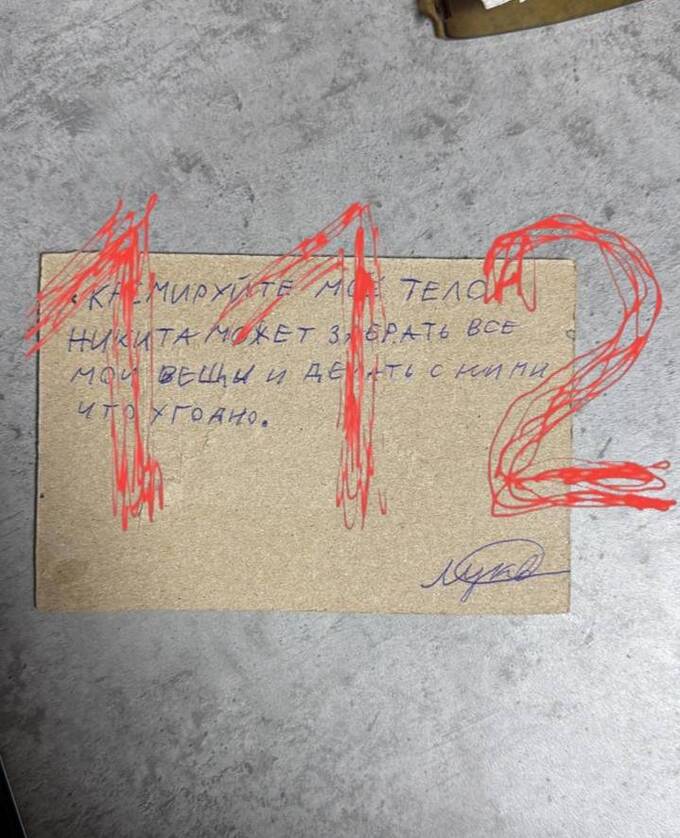 112
КРЕМИРУЙТЕ МОЕ ТЕЛО, А
НИКИТА МОЖЕТ ЗАБРАТЬ ВСЕ
МОИ ВЕЩЫ И ДЕЛАТЬ С НИМИ
ЧТО УГОДНО.